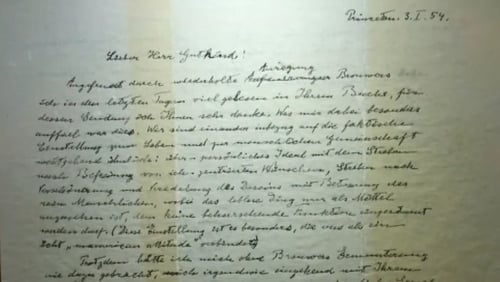 Princeton. 3. I. 54.
Lieber Herr Gutkind!
Anregung
Angefeuert durch wiederholte Brouwers
ich in den letzten Tagen viel gelesen in Ihrem Buche, für
dessen Sendung ich Ihnen sehr danke. Was mir dabei besonders
auffiel war dies. Wir sind einander inbezug auf die faktische
Einstellung zum Leben und zur menschlichen Gemeinschaft
weitgehend ähnlich: über-persönliches Ideal mit dem Streben
nach Befreiung von ich-zentrierten Wünschen, Streben nach
Verschönerung und Veredelung des Daseins mit Betonung des
rein Menschlichen, wobei das leblose Ding nur als Mittel
anzusehen ist, dem keine beherrschende Funktion eingeräumt
werden darf. (Diese Einstellung ist es besonders, die uns als ein
echt "unamerican attitude" verbindet)
Trotzdem hätte ich mich ohne Brouwers Ermunterung
nie dazu gebracht, mich irgendwie eingehend mit Ihrem